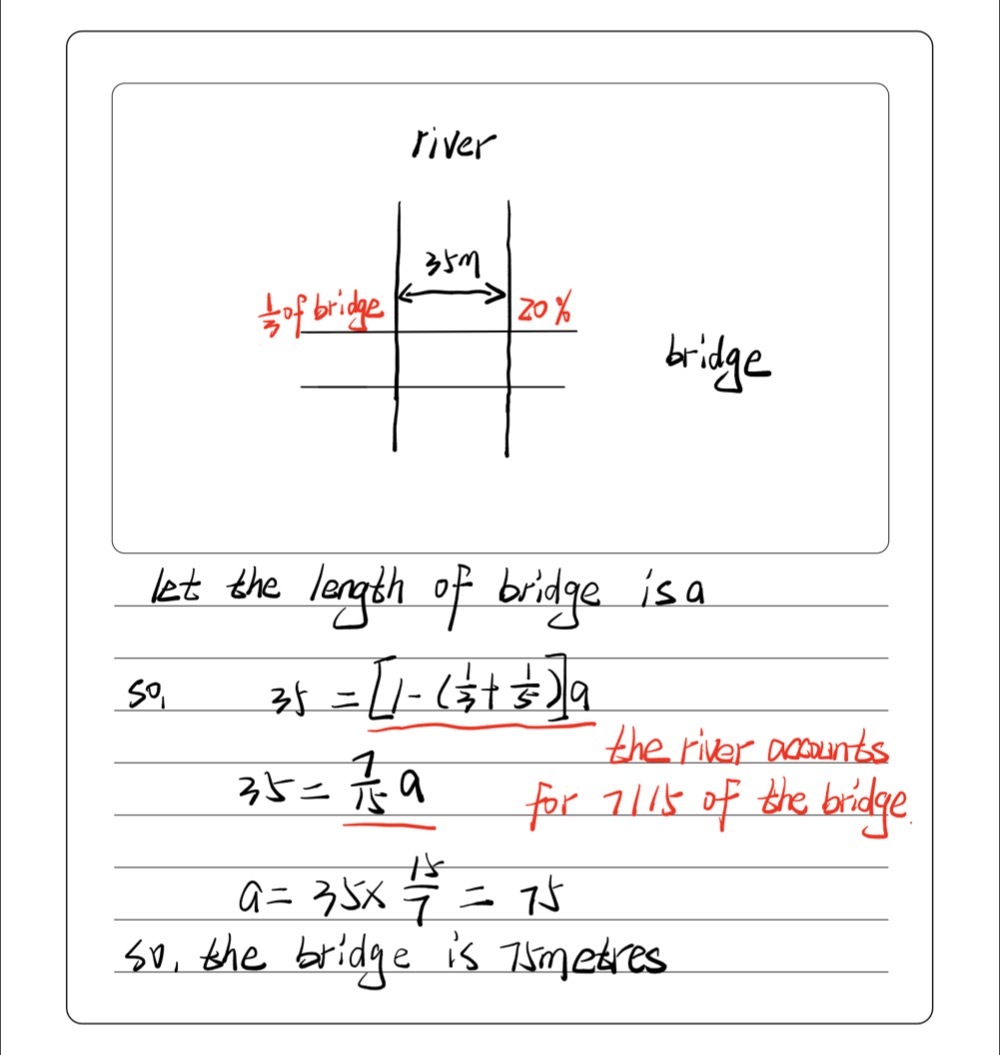 river
35m
1/3 of bridge
20%
bridge
let the length of bridge is a
so, 35 = [1-(1/3+1/5)]a
the river accounts
35 = 7/15 a
for 7/15 of the bridge.
a = 35× 15/7 = 75
so, the bridge is 75metres